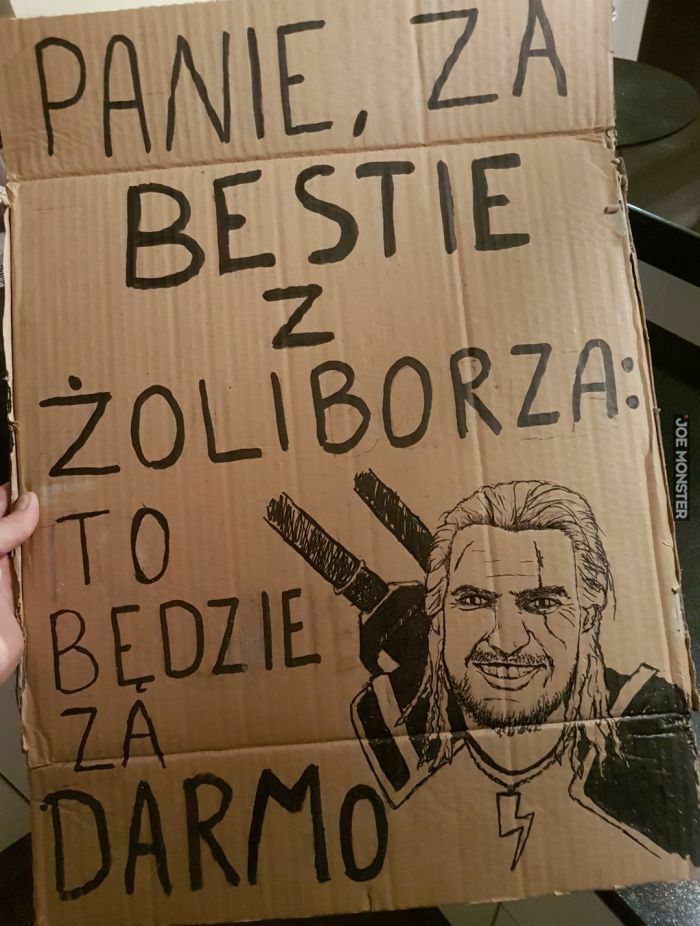 PANIE, ZA
BESTIE
Z
ŻOLIBORZA:
TO
BĘDZIE
ZA
DARMO
JOE MONSTER